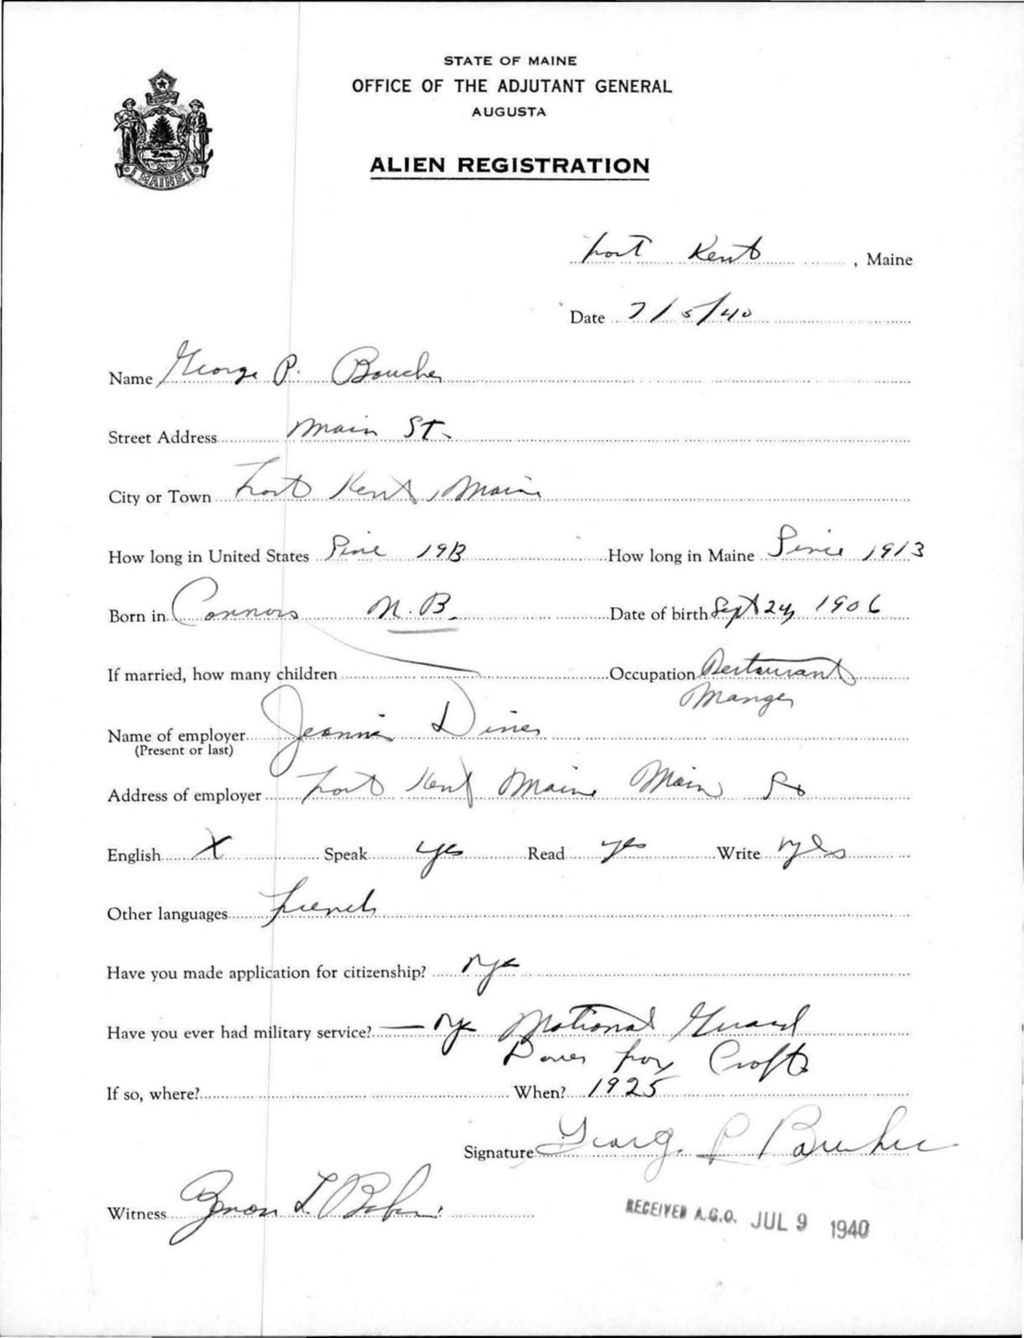 STATE OF MAINE
OFFICE OF THE ADJUTANT GENERAL
AUGUSTA
ALIEN REGISTRATION
MAINE
Fort Kent, Maine
Date 7/5/40
Name George P. Boucher
Street Address Main St.
City or Town Fort Kent, Maine
How long in United States Since 1913 How long in Maine Since 1913
Born in Connors N.B. Date of birth Sept 24, 1906
If married, how many children — Occupation Restaurant
Manger
Name of employer Jeannie Diner
(Present or last)
Address of employer Fort Kent Maine Main St
English X Speak yes Read yes Write yes
Other languages French
Have you made application for citizenship? yes
Have you ever had military service? — yes National Guard
Dover Fox Croft
If so, where? When? 1925
Signature George P Boucher
Witness Byron L
RECEIVED A.G.O. JUL 9 1940